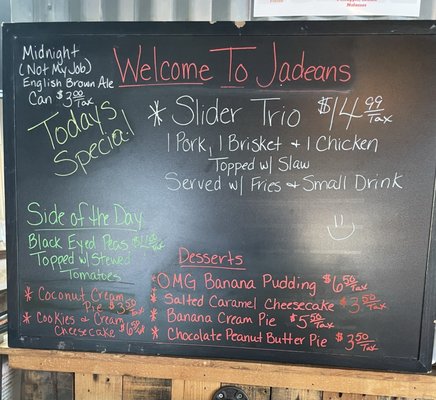 Midnight
(Not My Job)
English Brown Ale
Can $3.00 Tax
Welcome To Jadeans
Today's
Special
* Slider Trio $14.99 Tax
1 Pork, 1 Brisket & 1 Chicken
Topped w/ Slaw
Served w/ Fries & Small Drink
Side of the Day
Black Eyed Peas
Topped w/ Stewed
Tomatoes
* Coconut Cream
Pie $3.50 Tax
* Cookies & Cream
Cheesecake $6.50 Tax
Desserts
* OMG Banana Pudding $6.50 Tax
* Salted Caramel Cheesecake $3.50 Tax
* Banana Cream Pie $5.50 Tax
* Chocolate Peanut Butter Pie $3.50 Tax